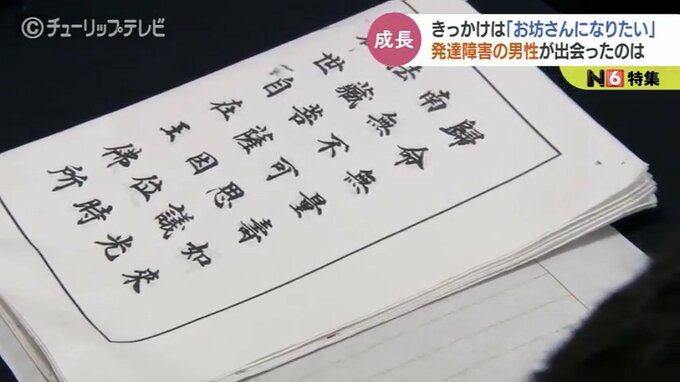 ©チューリップテレビ
成長
きっかけは「お坊さんになりたい」
発達障害の男性が出会ったのは
N6特集
歸命無量壽如來
南無不可思議光
法藏菩薩因位時
世自在王佛所